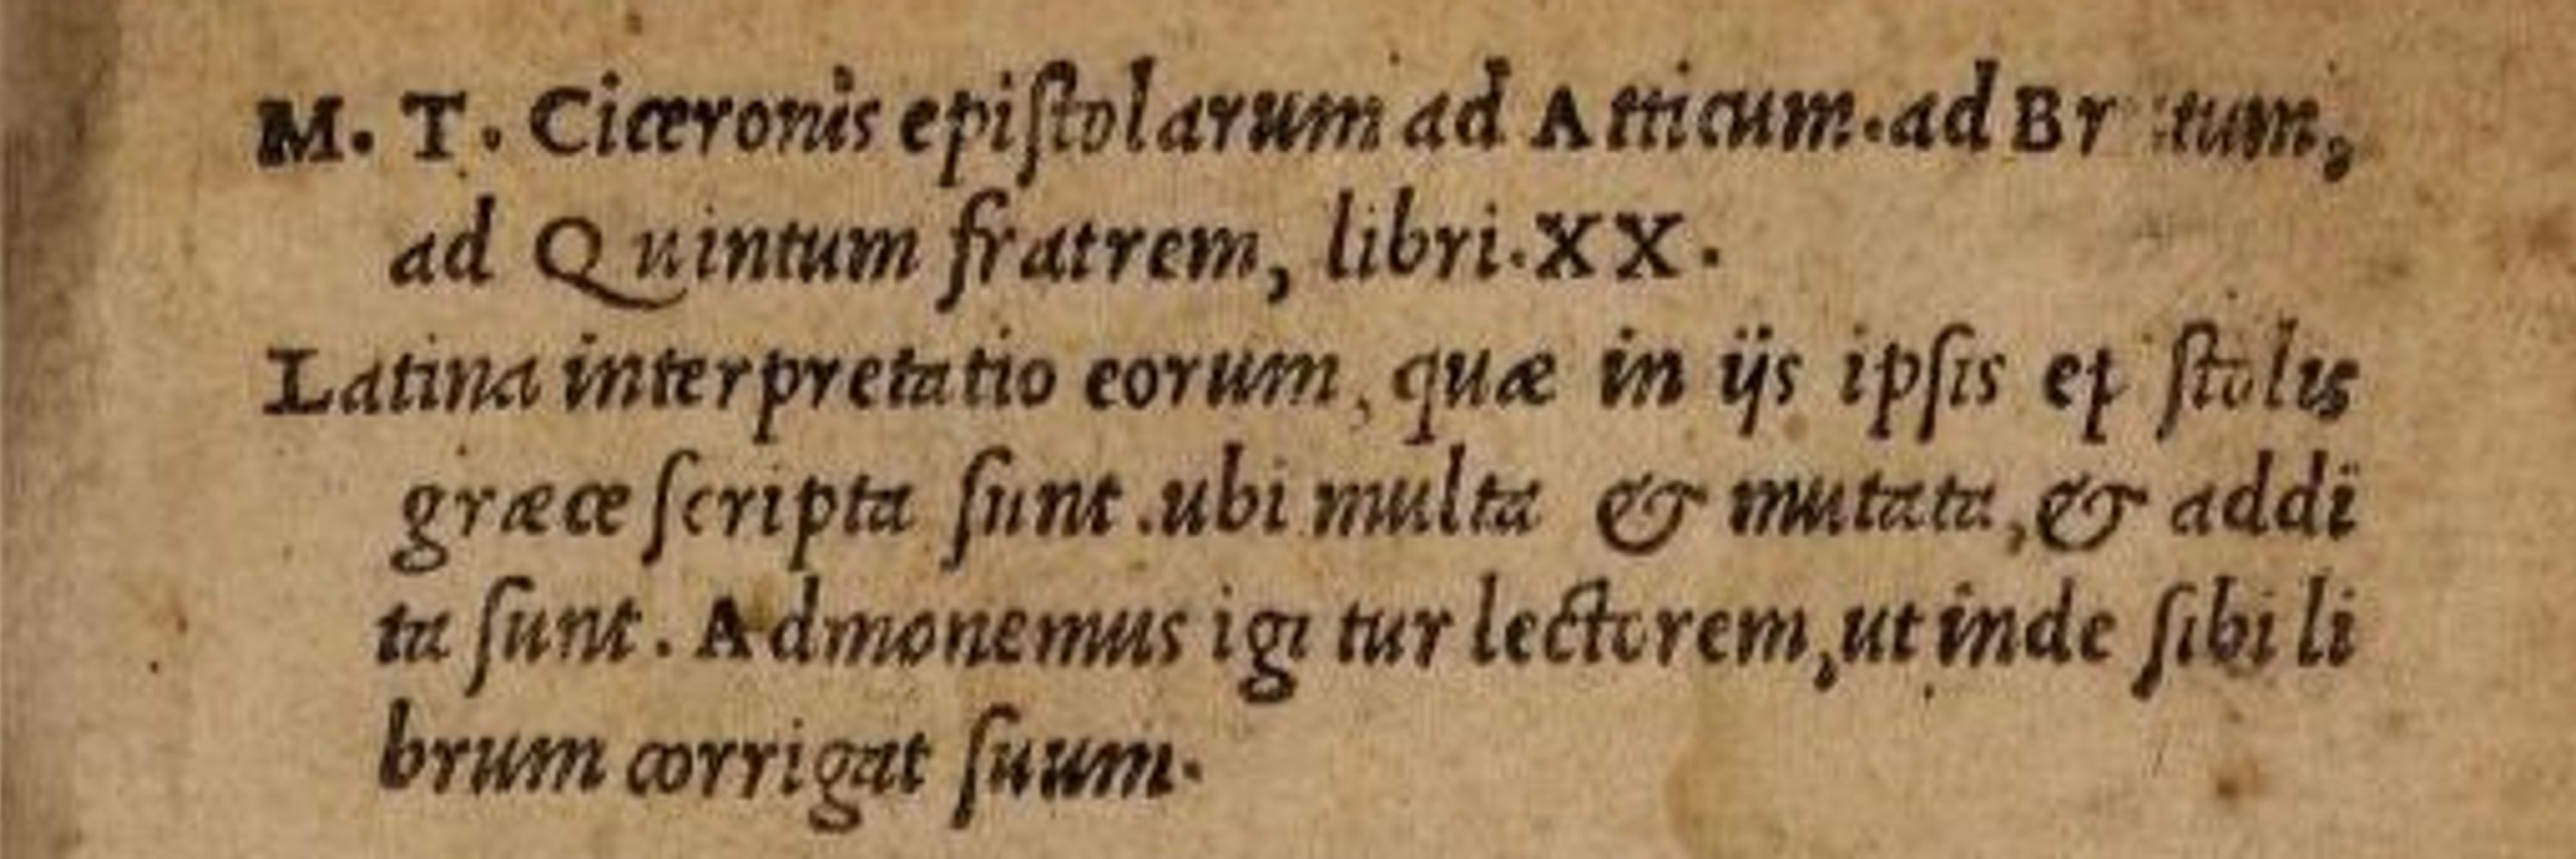 M. T. Ciceronis epiſtolarum ad Atticum.ad Brutum,
ad Quintum fratrem, libri.XX.
Latina interpretatio eorum, quæ in ijs ipſis epiſtolis
græce ſcripta ſunt.ubi multa & mutata,& addi
ta ſunt. Admonemus igitur lectorem,ut inde ſibi li
brum corrigat ſuum.